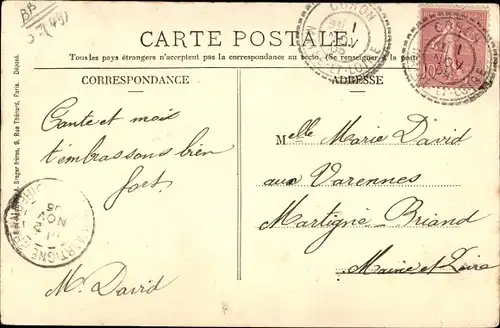 BB
CORON
CARTE POSTALE
Tous les pays étrangers n'acceptent pas la correspondance au recto. (Se renseigner à la poste
CORRESPONDANCE
ADRESSE
Dreger frères, 9, Rue Thénard, Paris. Déposé.
Tante et moi
t'embrassons bien
fort.
M. David
Melle Marie David
aux Varennes
Martigné-Briand
Maine et Loire
NOV
05